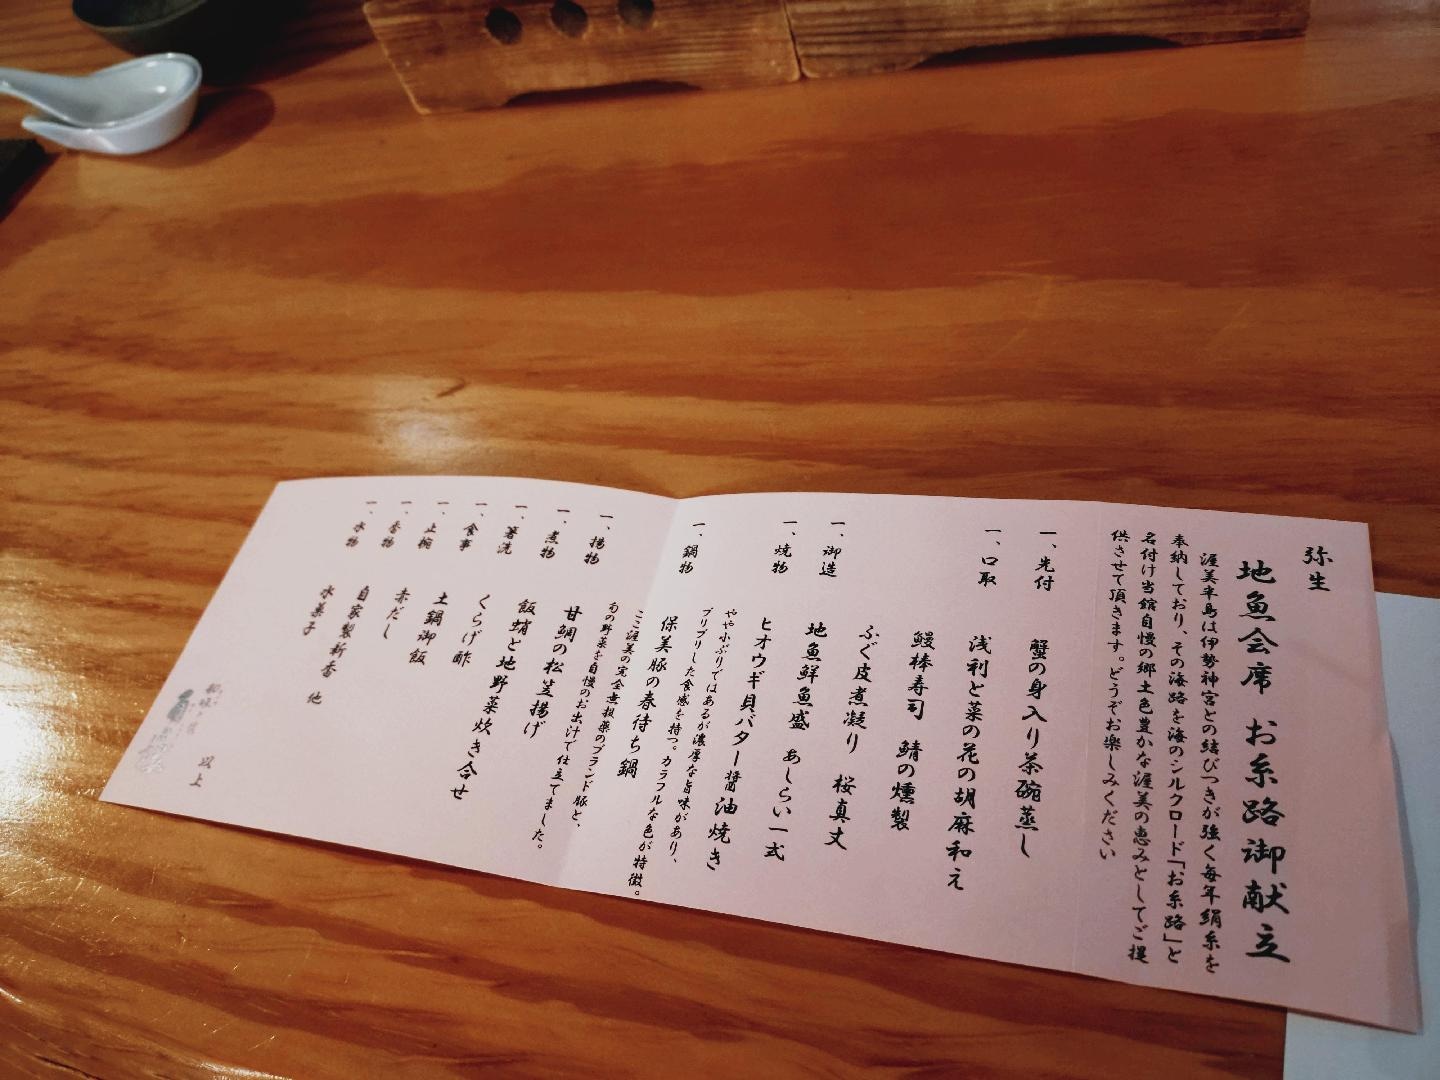 弥生
地魚会席 お糸路御献立
渥美半島は伊勢神宮との結びつきが強く毎年絹糸を
奉納しており、その海路を海のシルクロード「お糸路」と
名付け当館自慢の郷土色豊かな渥美の恵みとしてご提
供させて頂きます。どうぞお楽しみください
一、先付 蟹の身入り茶碗蒸し
一、口取 浅利と菜の花の胡麻和え
鰻棒寿司 鯖の燻製
ふぐ皮煮凝り 桜真丈
一、御造 地魚鮮魚盛 あしらい一式
一、焼物 ヒオウギ貝バター醤油焼き
やや小ぶりではあるが濃厚な旨味があり、
プリプリした食感を持つ。カラフルな色が特徴。
一、鍋物 保美豚の春待ち鍋
ここ渥美の完全無投薬のブランド豚と、
旬の野菜を自慢のお出汁で仕立てました。
一、揚物 甘鯛の松笠揚げ
一、煮物 飯蛸と地野菜炊き合せ
一、箸洗 くらげ酢
一、食事 土鍋御飯
一、止椀 赤だし
一、香物 自家製新香 他
一、水物 水菓子
以上